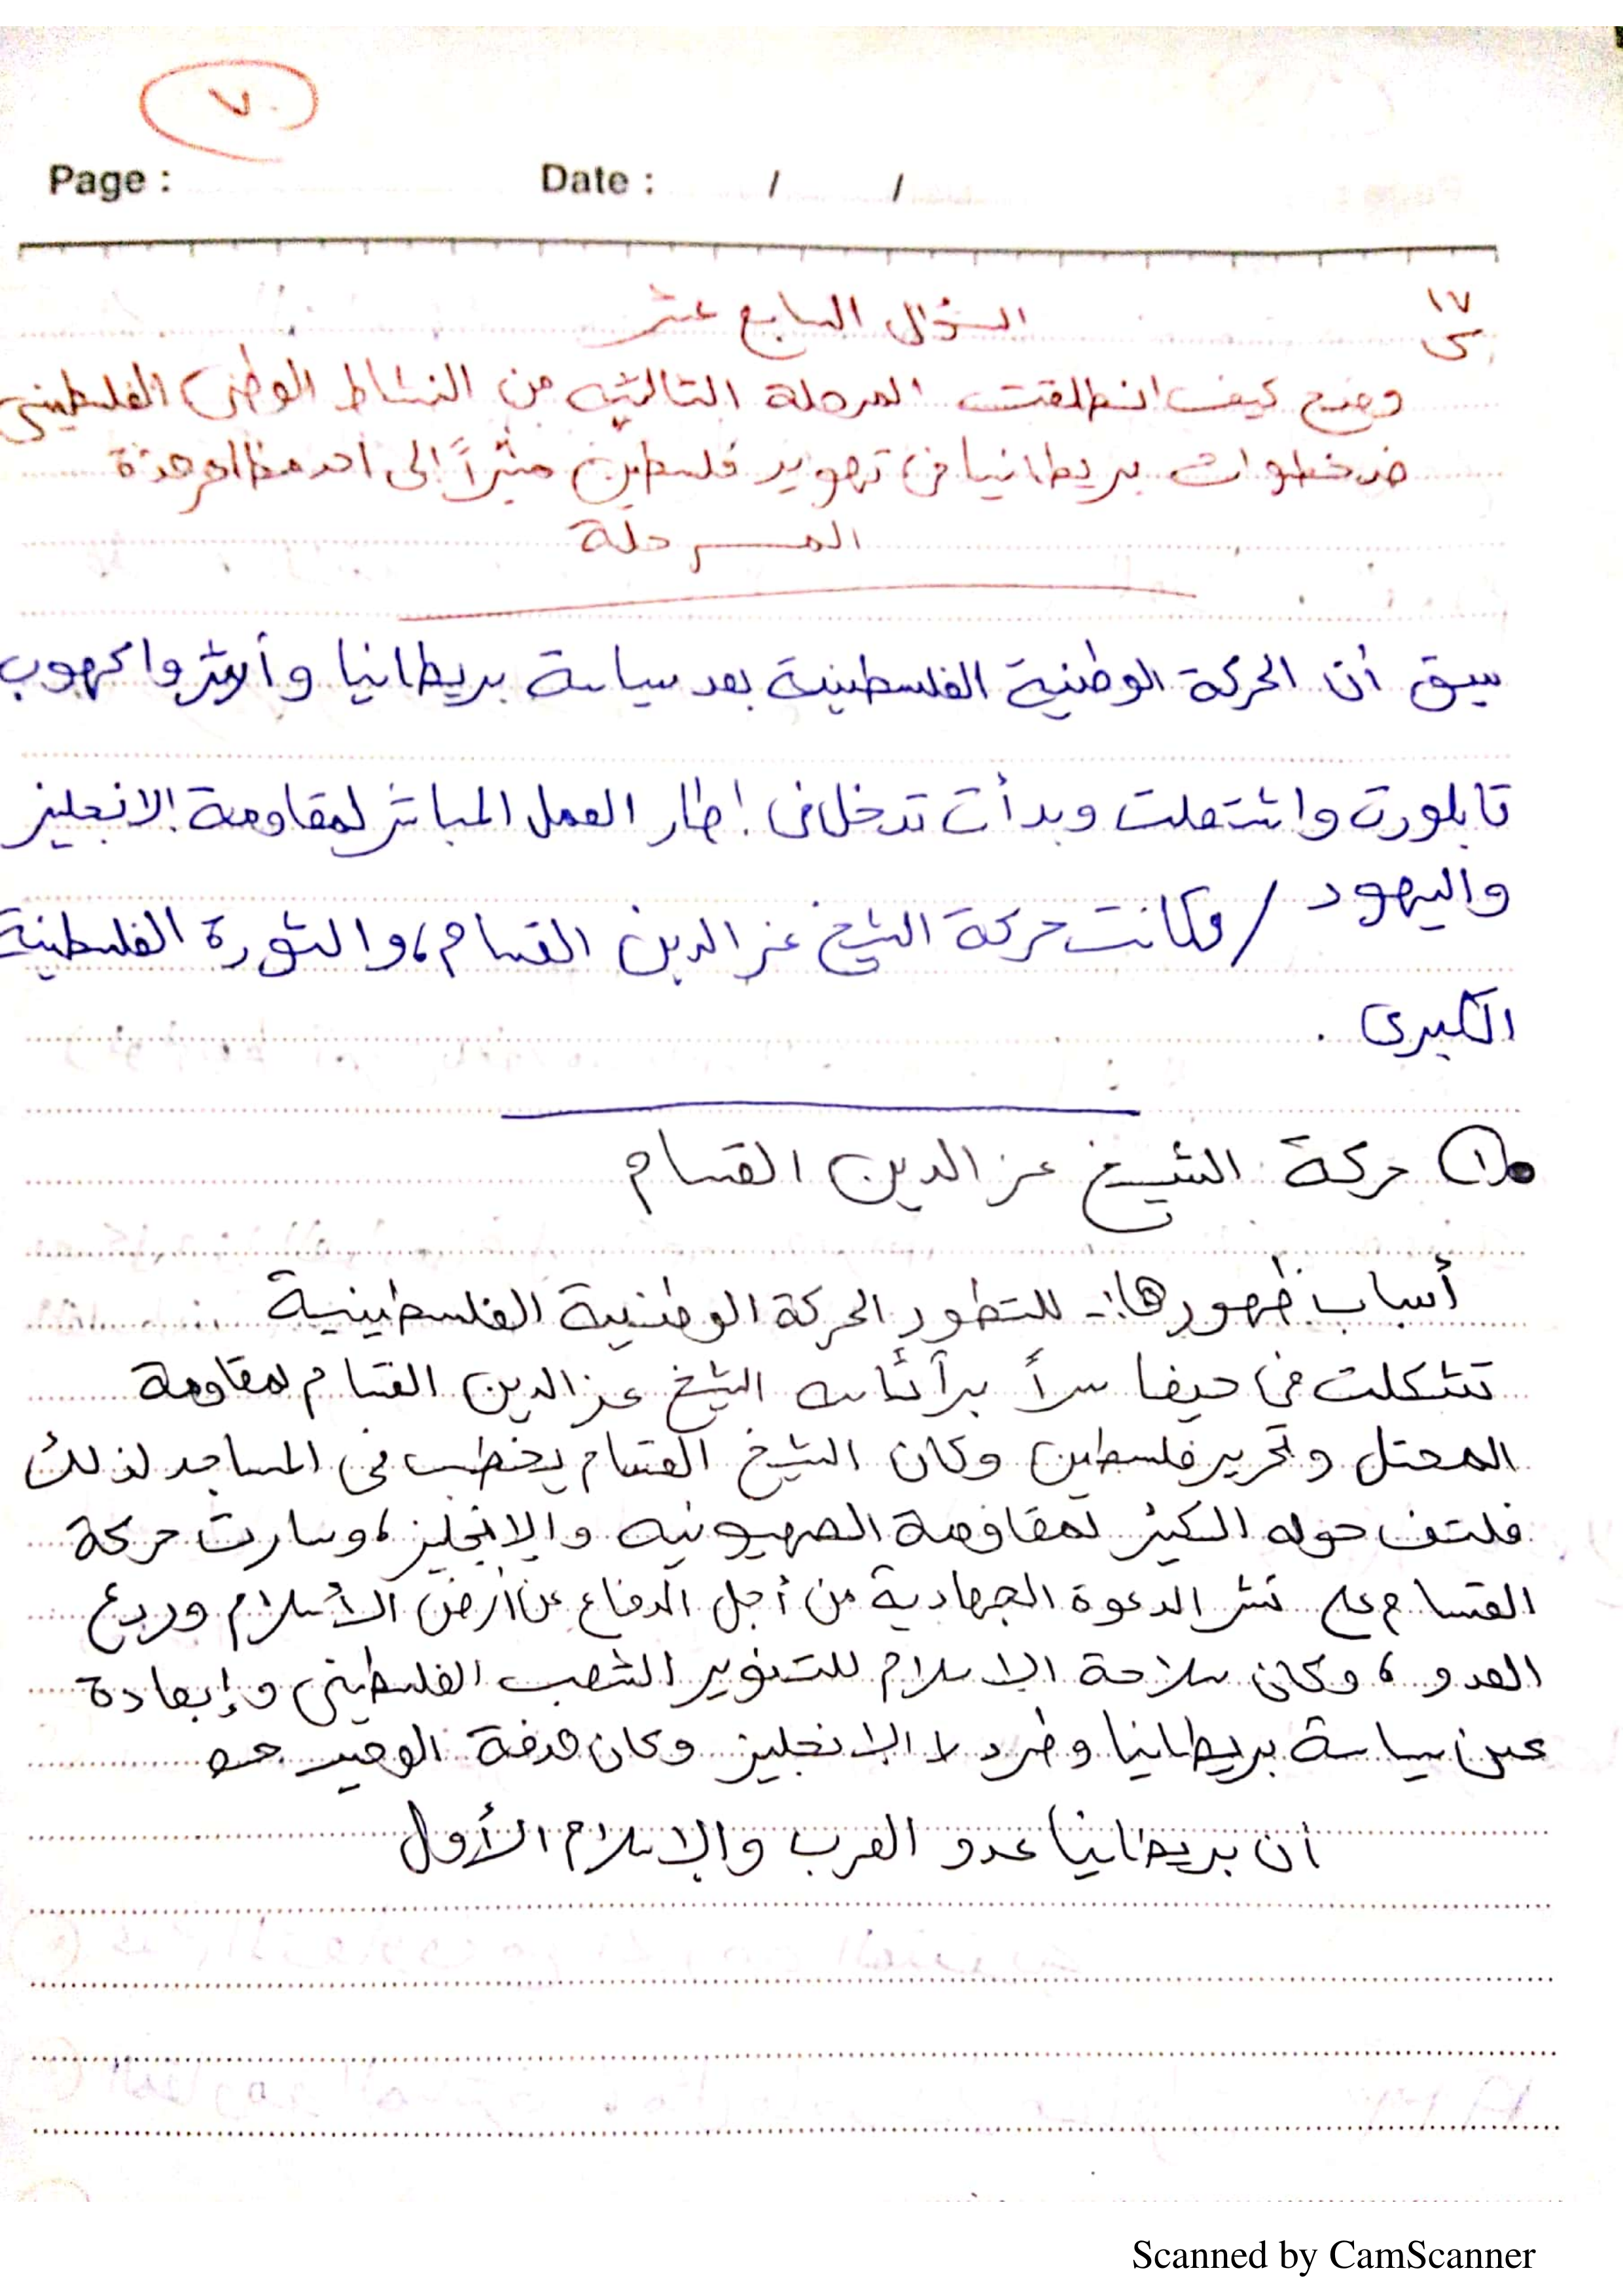 ٧٠
Page :
Date : / /
١٧
س
السؤال السابع عشر
وضح كيف انطلقت المرحلة الثالثيه من النشاط الوطني الفلسطيني
ضد خطوات بريطانيا في تهويد فلسطين مشيراً الى احد مظاهر هذة
المرحلة
سبق أن الحركة الوطنية الفلسطينية بعد سياسة بريطانيا و
تابلورت واشتعلت وبدأت تدخل في اطار العمل المباشر لمقاومة الانجليز
واليهود / وكانت حركة الشيخ عز الدين القسام، والثورة الفلسطينية
الكبرى .
١ حركة الشيخ عز الدين القسام
أسباب ظهورها:- للتطور الحركة الوطنية الفلسطينية
تشكلت في حيفا سراً الشيخ عز الدين القسام لمقاومة
المحتل وتحرير فلسطين وكان الشيخ القسام يخطب في المساجد لذلك
فلتف حوله الكثير لمقاومة الصهيونيه والإنجليز، وسارت حركة
القسام على نشر الدعوة الجهادية من أجل الدفاع عن أرض الأسلام وردع
العدو، وكان سلاحة الإسلام للتنوير الشعب الفلسطيني وإبعادة
عن سياسة بريطانيا وطرد الإنجليز وكان هدفة الوحيد هو
أن بريطانيا عدو العرب والإسلام الأول
Scanned by CamScanner